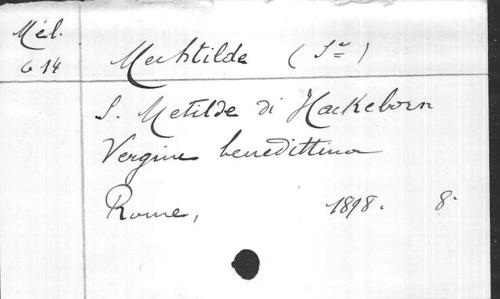 Mél.
614
Mechtilde (Ste)
S. Metilde di Hackeborn
Vergine benedittina
Rome, 1898. 8.